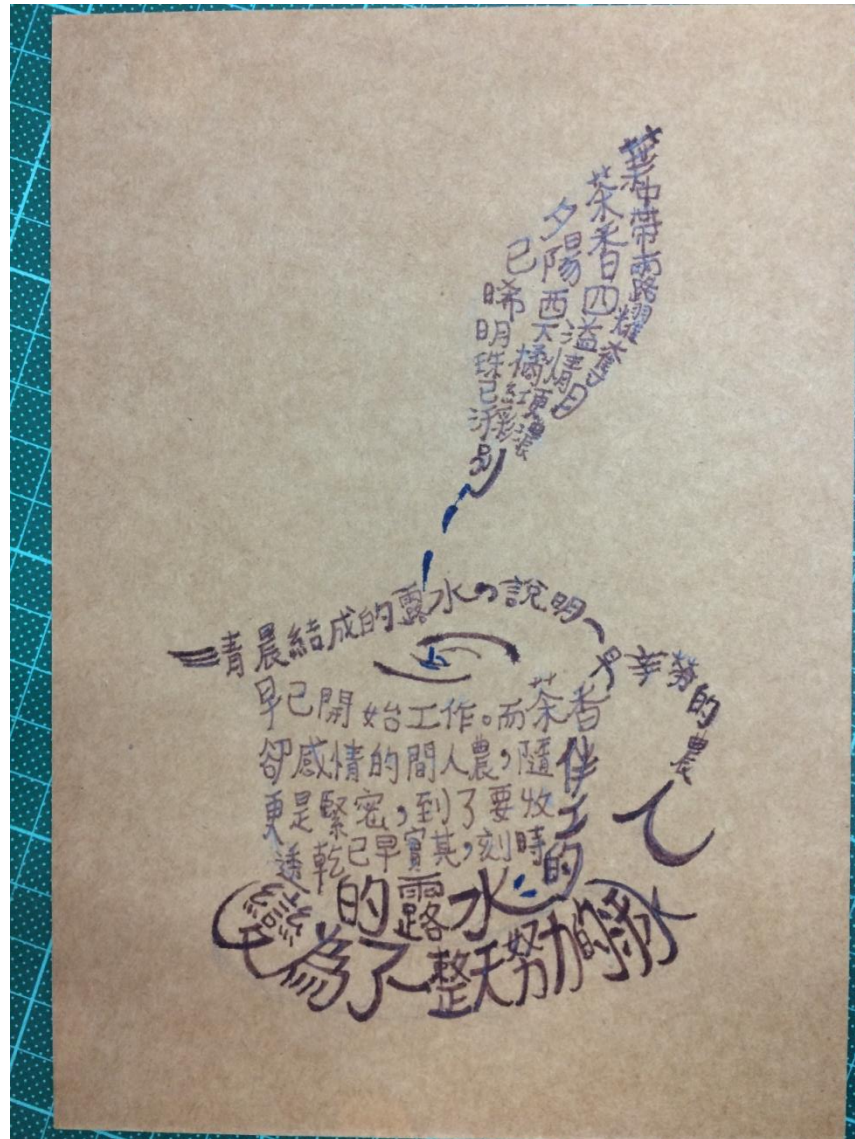 葉中帶雨露耀奪目
茶香四溢情更濃
夕陽西下橘紅彩
已晞明珠已
清晨結成的露水,說明
辛勞的農人
早已開始工作。而茶香伴
卻感情的間人農,隨
更是緊密,到了要收工的
透乾已早實其,刻時
的露水,
變為了整天努力的汗水